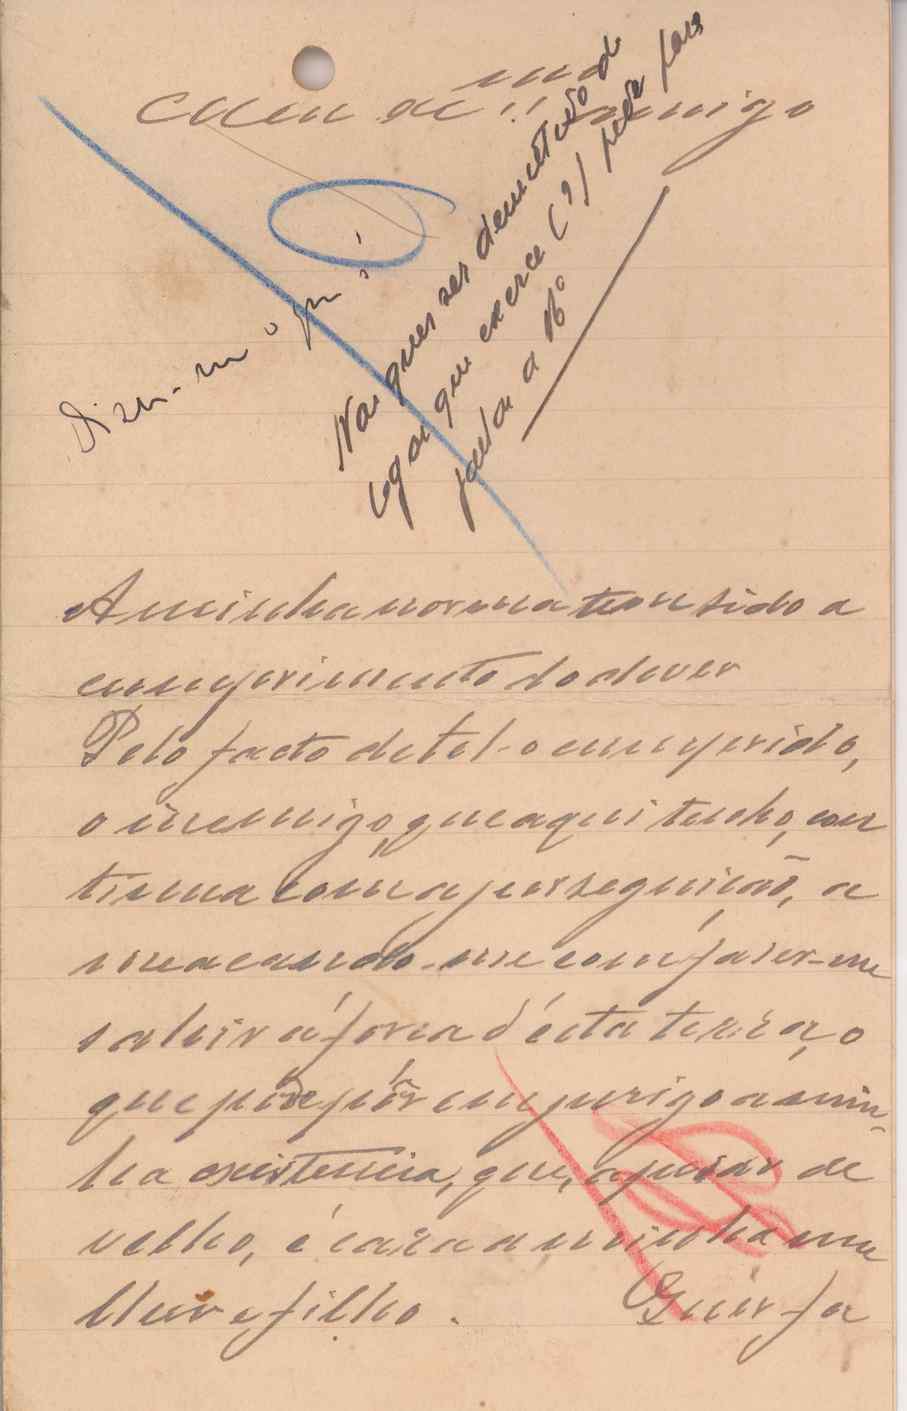 Meu caro Amigo
Dizem-me o que
Não quer ser demittido do
logar que exerce (?) pede para
fallar a V.
A minha norma tem sido a
cumprimento do dever
Pelo facto de tel-o cumprido,
o inemigo, que aqui tenho, con
tinua com a perseguição, a
meacando-me com fazer-me
sahir á força d'ésta terra, o
que póde pôr em perigo a min-
ha existencia, que, apezar de
velho, é cára a minha mu
lher e filho. Quer fa